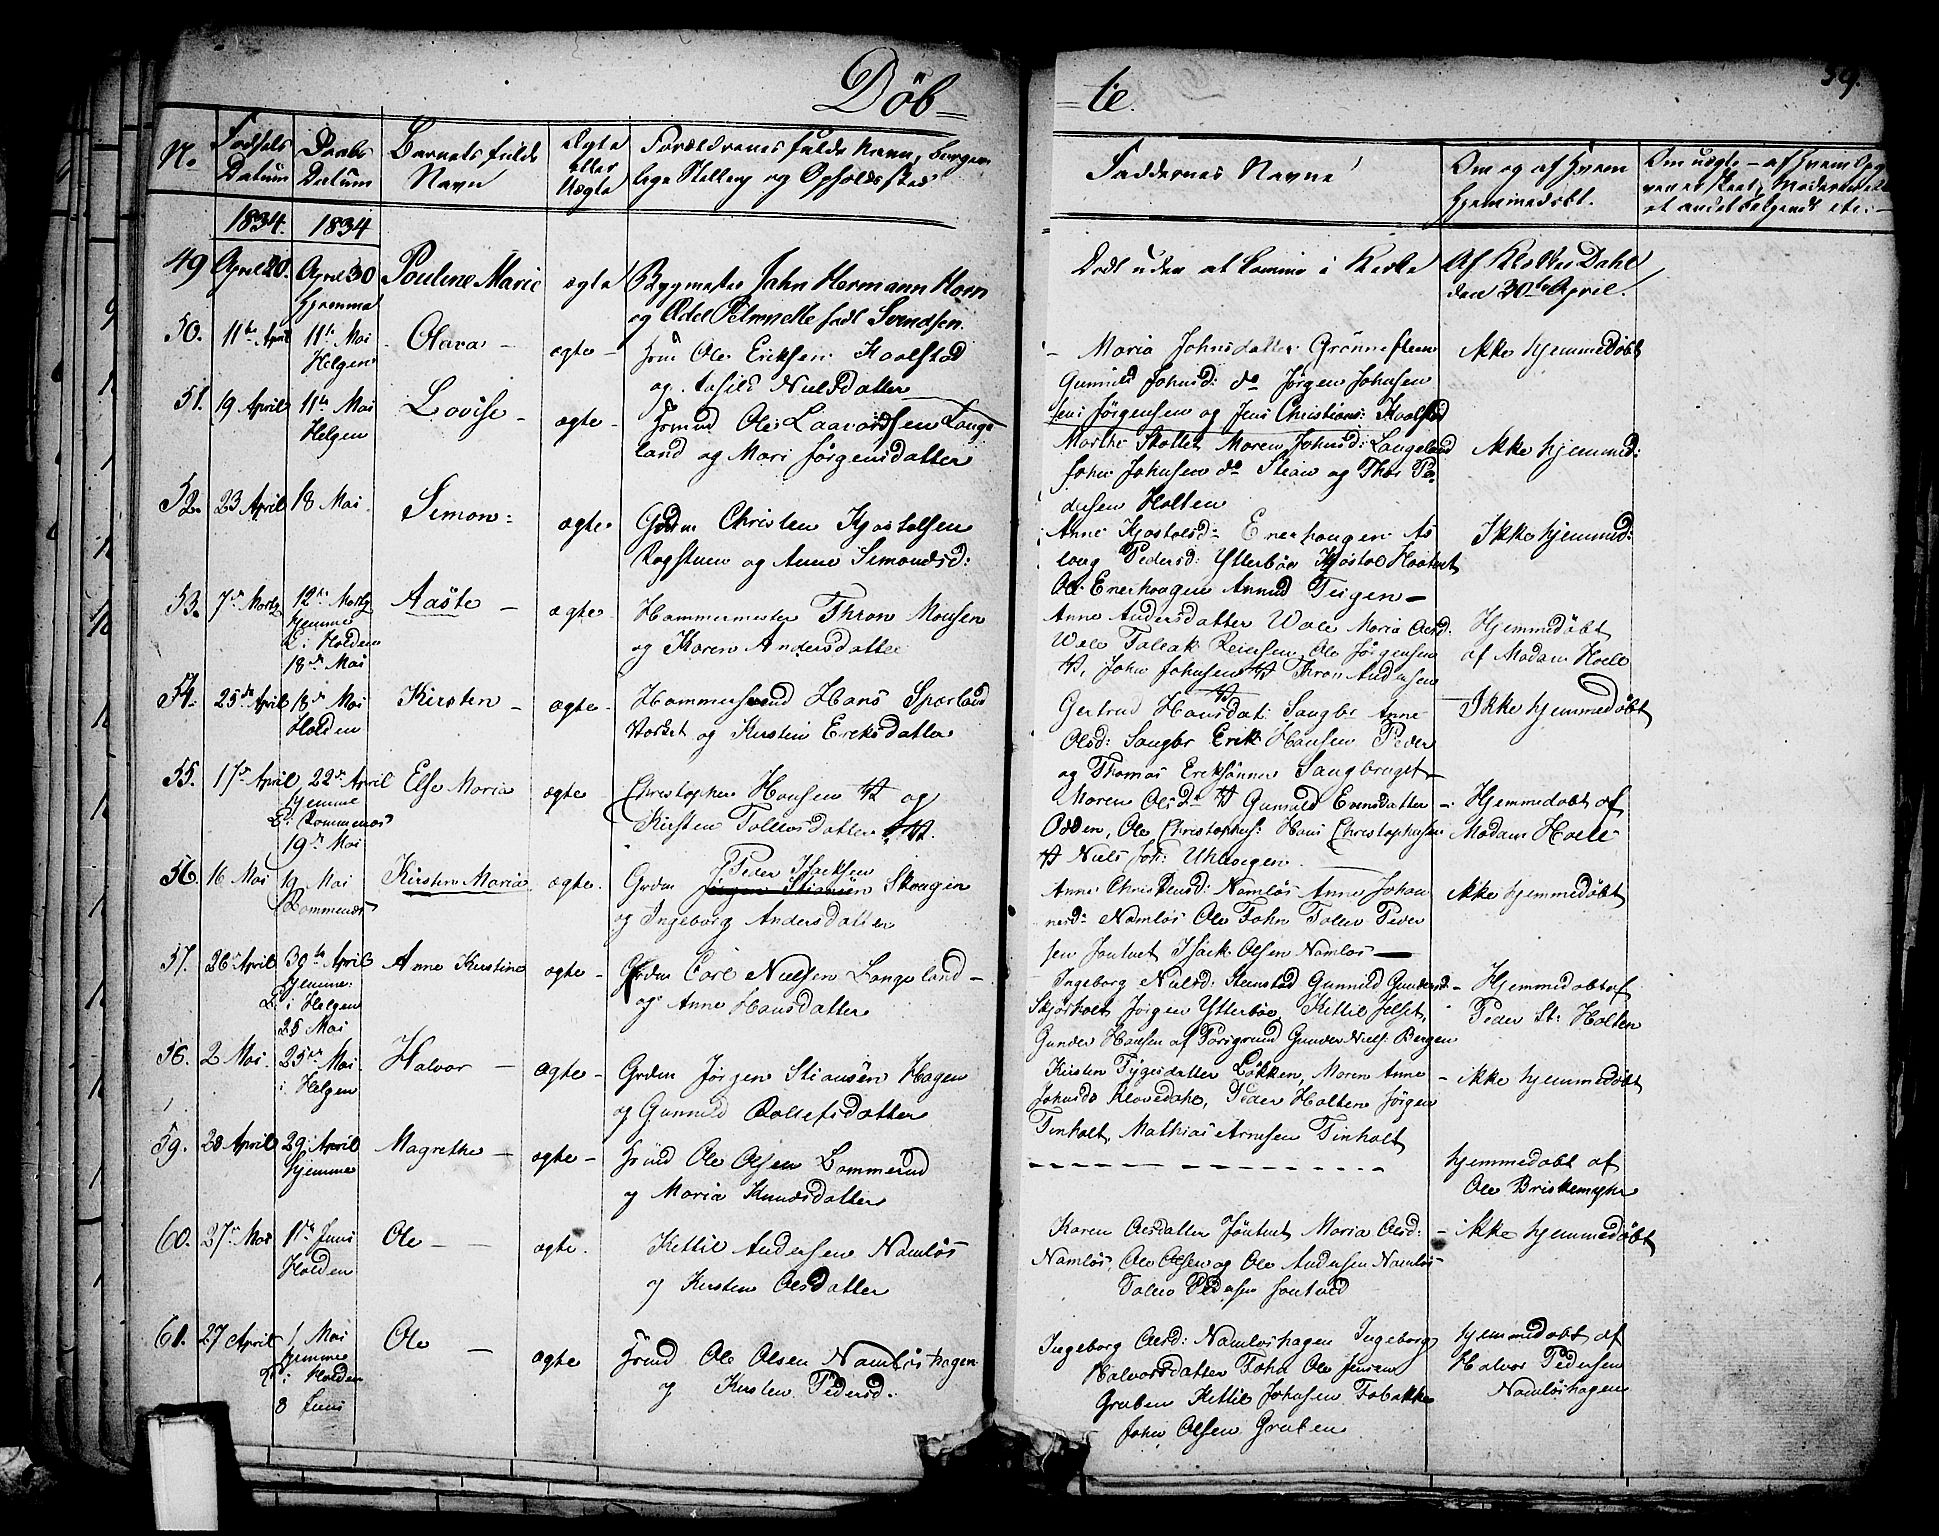 Døb-
-te.
59.
No
Fødsels Datum
Daabs Datum
Barnets fulde Navn
Ægte eller Uægte
Forældrenes fulde Navn, borger-
lige Stilling og Opholdssted
Faddernes Navne
Om og af Hvem
Hjemmedøbt.
Om uægte
1834. 1834
49 April 20. April 30 Hjemme Pouline Marie ægte Bygmester John Hermann Horn
og
født Svendsen
Død uden at komme i Kirke
Af Klokker Dahl
den 30te April.
50. 11te April 11te Mai Helgen Olava - ægte -
Ole Eriksen Kaalstad
og Aasild Nielsdatter
- Maria Johnsdatter Grønnesteen
Gunnild Johnsd: do Jørgen Johnsen
Jens Jørgensen og Jens Christians: Kaalstad
Ikke hjemmedøbt
51. 19 April 11te Mai Helgen Lovise - ægte -
Ole Laavordsen Lange
land og Mari Jørgensdatter
Marthe Maren Johnsd: Langeland
John Johnsen do og Thor Pe-
dersen Holten
Ikke hjemmed:
52. 23 April 18 Mai Simon - ægte - Grdm Christen Kjostolsen
Rogstuen og Anne Simonsd:
Anne Kjostolsd: Enerhougen As
loug Pedersd: Ytterbøe Kjøstol
Ole Enerhougen Teigen -
Ikke hjemmed:
53. 7de Martz 12te Martz hjemme D: i Holden 18de Mai Aaste - ægte - Hammermester Thron Monsen
og Karen Andersdatter
Anne Andersdatter Wale Maria Olsd:
Wale Ole Jørgensen
John Johnsen Thron Andersen
Hjemmedøbt
af Madam Hoell
54. 25de April 18de Mai Holden Kirsten - ægte - Hammersmed Hans
og Kirstin Ericksdatter
Gertrud Hansdat: Saugbr Anne
Olsd: Saugbr Erik Hansen Peder
og Thomas Eriksønner Saugbruget -
Ikke hjemmedøbt
55. 17de April 22de April Hjemme D: Rommenæs 19de Mai Else Maria ægte Christopher Hansen og
Kirsten Tollevsdatter
Maren Olsd: Gunuld Evensdatter -
Odden, Ole Christophers: Hans Christophersen
Niels Joh: Uhlevigen.
Hjemmedøbt af
Madam Hoell
56. 16 Mai 19 Mai Rommenæs Kirsten Maria ægte. Grdm Peder Isacksen
Jørgen Stiansen Skougin
og Ingeborg Andersdatter
Anne Christensd: Namløs Anne Johan
nesd: Namløs Ole John Tolev Peder
sen Jontvet Isack Olsen Namløs -
Ikke hjemmedøbt
57. 26 April 30te April hjemme: D: i Helgen 25 Mai Anne Kirstine ægte - Grdm Carl Nielsen Langeland -
og Anne Hansdatter
Ingeborg Nielsd: Stenstad Gunnild Gundersd: -
Skjørholt Jørgen Ytterbøe, Kittil Jelset,
Gunder Hansen af Porsgrund Gunder Niels: Bergen
Hjemmedøbt af
Peder St: Holten
58. 2 Mai. 25de Mai i Helgen Halvor - ægte - Grdm Jørgen Stiansen Hagen
og Gunnild Rollefsdatter
Kirsten Tygesdatter Løkken, Maren Anne
Johnsd: Klovedahl, Peder Holten Jørgen
Tinholt, Mathias Arnesen Tinholt
- ikke hjemmedøbt
59. 28 April 29 April hjemme Magrethe - ægte - Hmd Ole Olsen Lommerud
og Maria Knudsdatter
hjemmedøbt af
Ole Briskemyhr
60. 27de Mai 1ste Juni Holden Ole - - ægte. Kettil Andersen Namløs
og Kirsten Olsdatter
Karen Olsdatter Jøntvet Maria Olsd: -
Namløs, Ole Olsen og Ole Andersen Namløs
Tolev Pedersen Jontved
ikke hjemmedøbt
61. 27 April 1 Mai hjemme D: i Holden 8 Juni Ole - ægte Hmd Ole Olsen Namløshagen
og Kirsten Pedersd.
Ingeborg Olsd: Namløshagen Ingeborg
Halvorsdatter John Ole Jensen
Gruben Kittil Johnsen Fobakke
John Olsen Gruben
hjemmedøbt af
Halvor Pedersen
Namløshagen